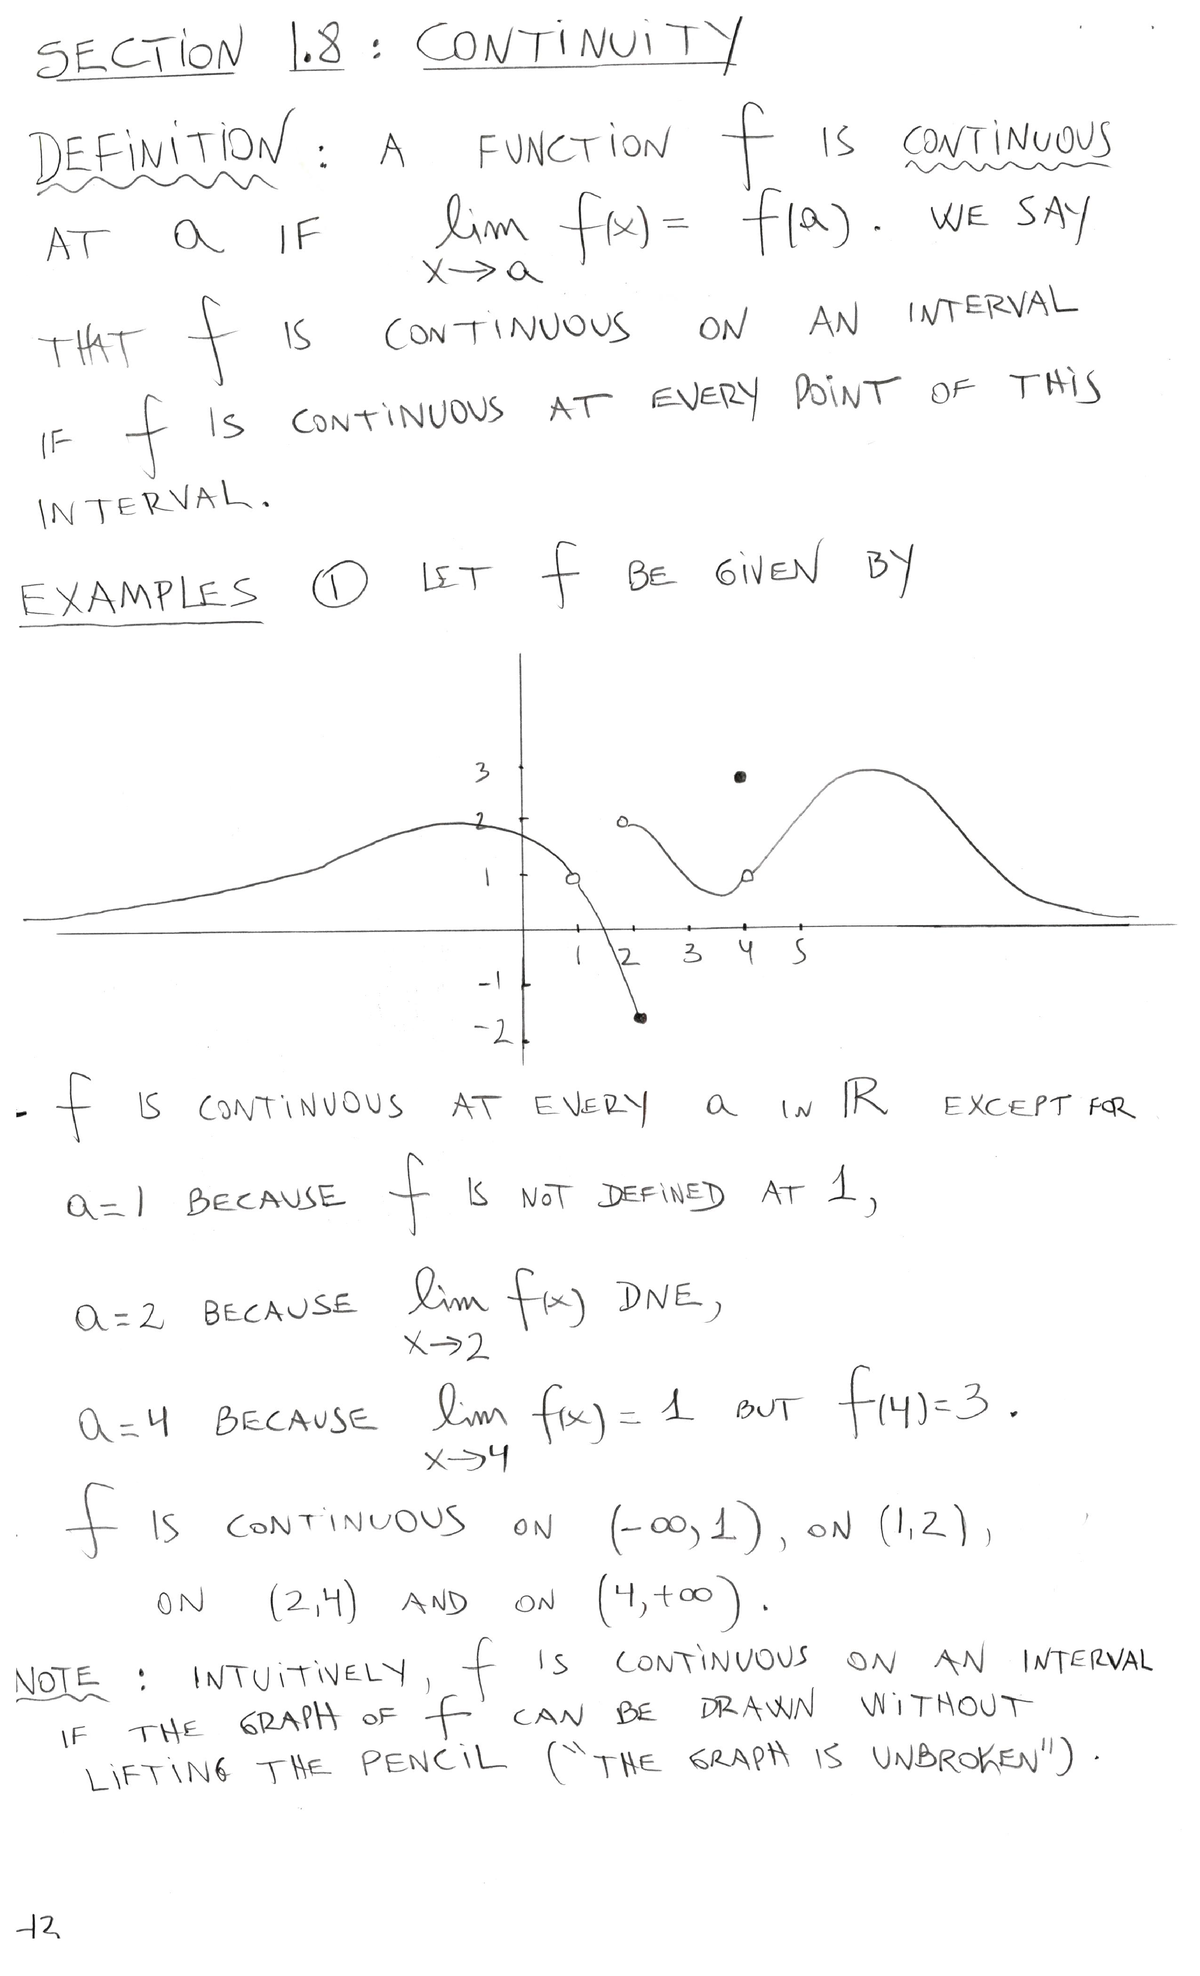 SECTION 1.8 : CONTINUITY
DEFINITION : A FUNCTION f IS CONTINUOUS
AT a IF lim f(x) = f(a). WE SAY
x→a
THAT f IS CONTINUOUS ON AN INTERVAL
IF f IS CONTINUOUS AT EVERY POINT OF THIS
INTERVAL.
EXAMPLES ① LET f BE GIVEN BY
3
2
1
1 2 3 4 5
-1
-2
- f IS CONTINUOUS AT EVERY a IN ℝ EXCEPT FOR
a=1 BECAUSE f IS NOT DEFINED AT 1,
a=2 BECAUSE lim f(x) DNE,
x→2
a=4 BECAUSE lim f(x) = 1 BUT f(4)=3.
x→4
f IS CONTINUOUS ON (-∞,1), ON (1,2),
ON (2,4) AND ON (4,+∞).
NOTE : INTUITIVELY, f IS CONTINUOUS ON AN INTERVAL
IF THE GRAPH OF f CAN BE DRAWN WITHOUT
LIFTING THE PENCIL ("THE GRAPH IS UNBROKEN").